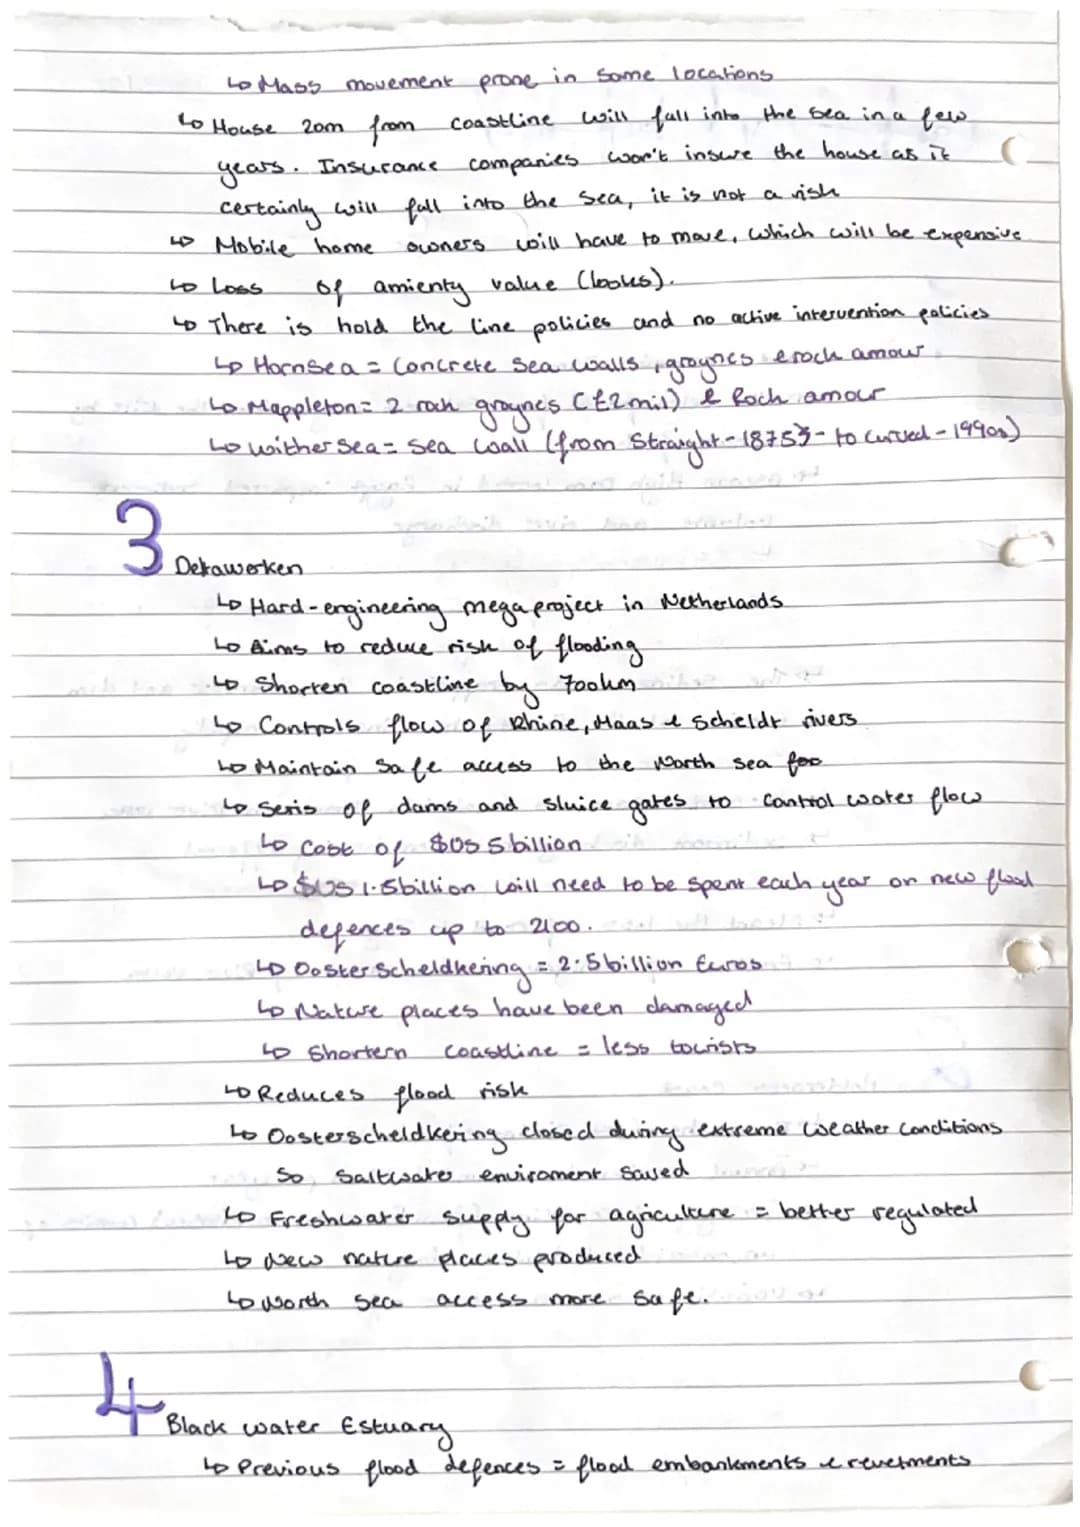 ↳ Mass movement prone in some locations
↳ House 20m from coastline will fall into the sea in a few
years. Insurance companies won't insure the house as it
certainly will fall into the sea, it is not a risk
↳ Mobile home owners will have to move, which will be expensive
↳ Loss of amienty value (looks).
↳ There is hold the line policies and no active intervention policies
↳ Hornsea = Concrete sea walls, groynes & rock amour
↳ Mappleton = 2 rock groynes (£2mil) & Rock amour
↳ withersea = sea wall (from straight - 1875 - to curved - 1990s)
3
Detawerken
↳ Hard-engineering mega project in Netherlands
↳ Aims to reduce risk of flooding
↳ Shorten coastline by 700km
↳ Controls flow of Rhine, Maas & Scheldt rivers
↳ Maintain safe access to the North sea
↳ Seris of dams and sluice gates to control water flow
↳ Cost of $US 5 billion
↳ $US 1.5billion will need to be spent each year on new flood
defences up to 2100.
↳ Oosterscheldkering = 2.5 billion Euros
↳ Nature places have been damaged
↳ Shortern coastline = less tourists
↳ Reduces flood risk
↳ Oosterscheldkering closed during extreme weather conditions
so saltwater enviroment saved
↳ Freshwater supply for agriculture = better regulated
↳ New nature places produced
↳ North sea access more safe.
4
Black water Estuary
↳ Previous flood defences = flood embankments & revetments